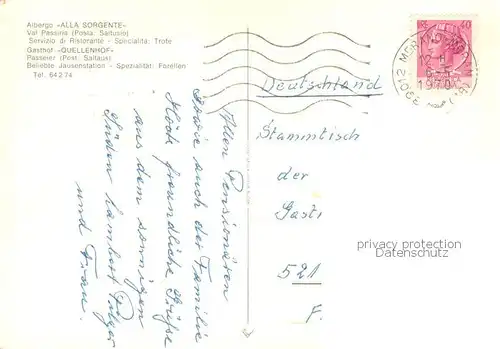 Albergo «ALLA SORGENTE»
Val Passiria (Posta: Saltusio)
Servizio di Ristorante - Specialità: Trote
Gasthof «QUELLENHOF»
Passeier (Post: Saltaus)
Beliebte Jausenstation - Spezialität: Forellen
Tel. 64274
40
12-
1970
39012 MERANO
Deutschland
Stammtisch
der
Gasti
521
F.
privacy protection
Datenschutz
Allen Pensionären
sowie auch der Familie
Koch freundliche Grüße
aus dem sonnigen
Süden Lambert Pilger
und Frau.